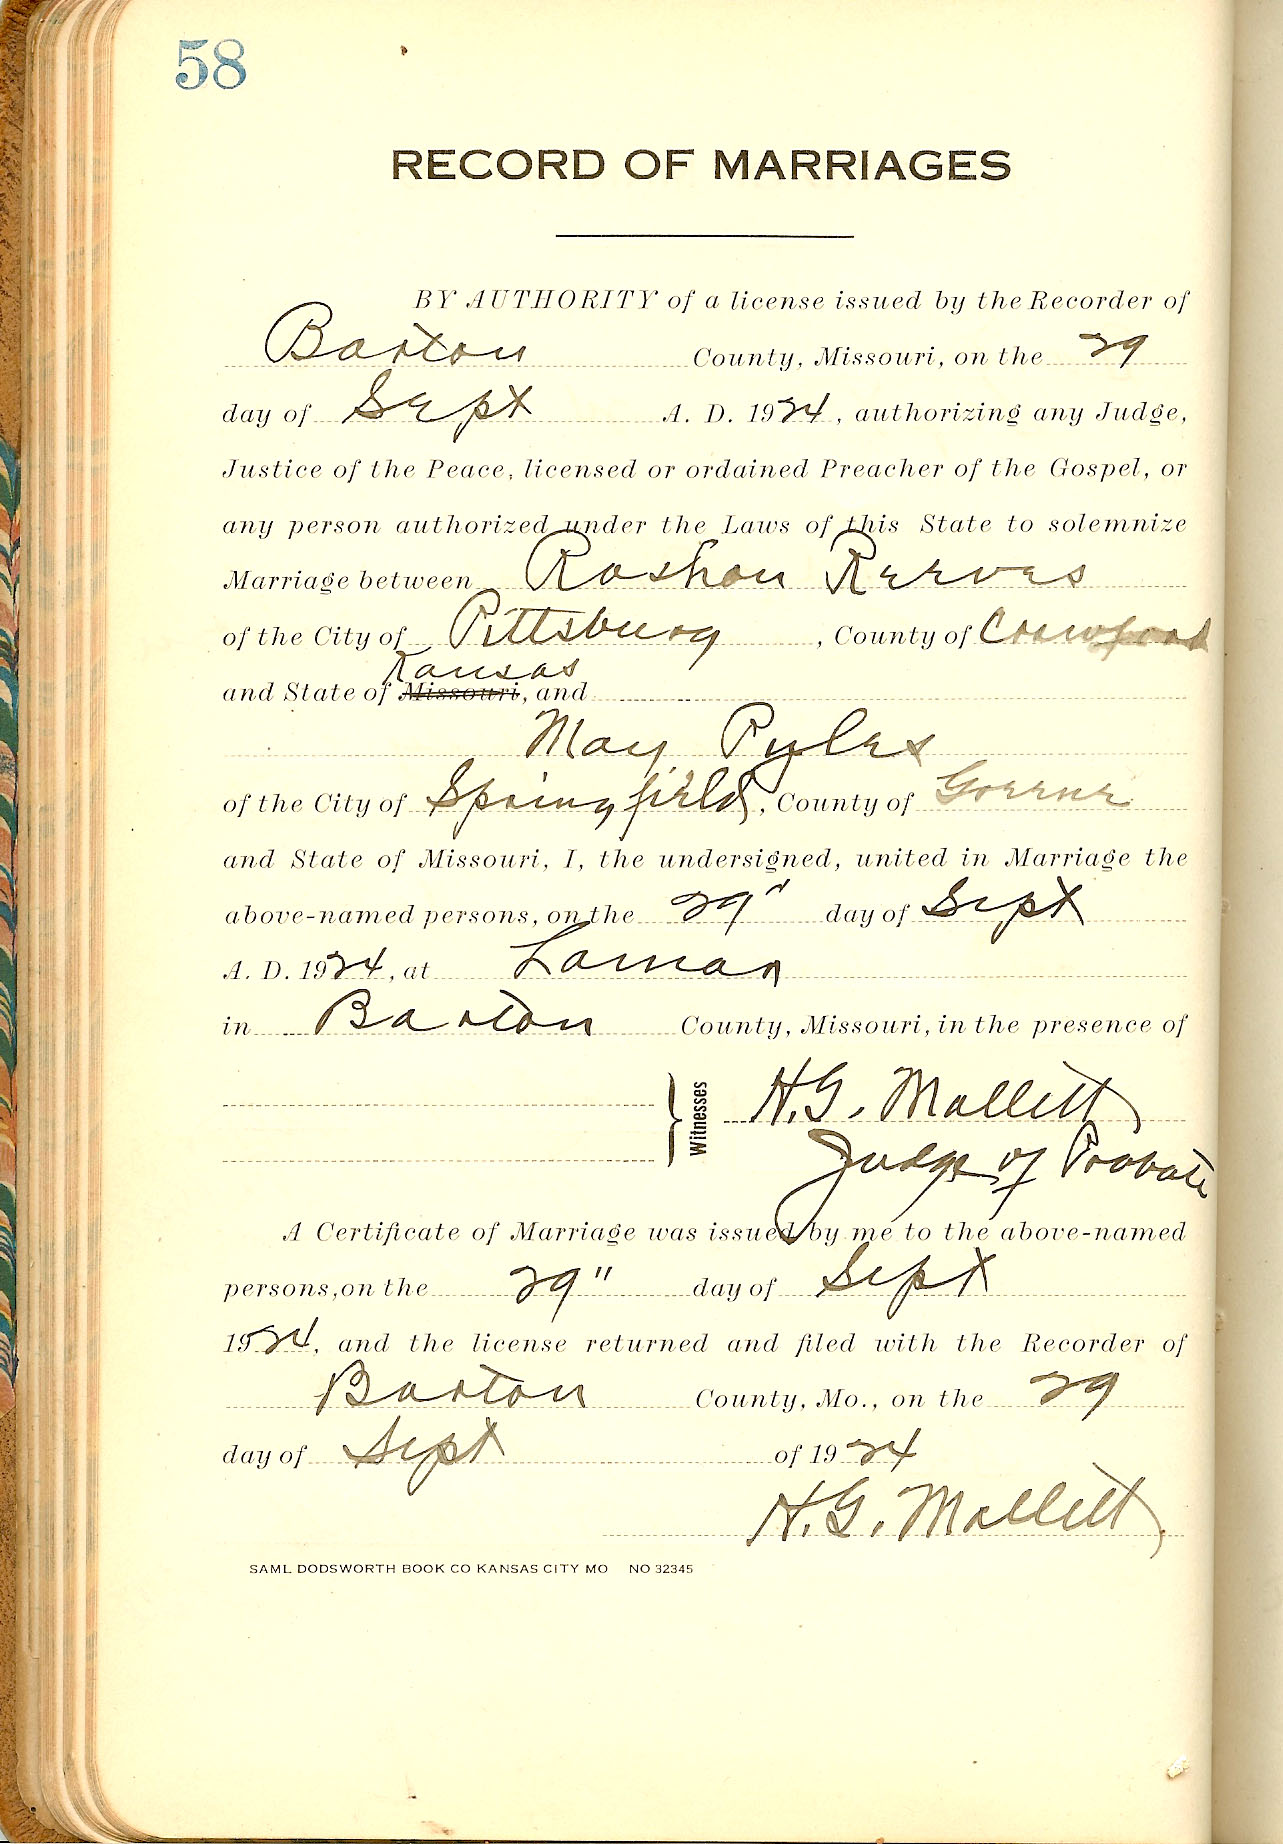 58
RECORD OF MARRIAGES
BY AUTHORITY of a license issued by the Recorder of
Barton County, Missouri, on the 29
day of Sept A. D. 1924, authorizing any Judge,
Justice of the Peace, licensed or ordained Preacher of the Gospel, or
any person authorized under the Laws of this State to solemnize
Marriage between Roshon Reeves
of the City of Pittsburg, County of Crawford
Kansas
and State of Missouri, and
May Pyles
of the City of Springfield, County of Greene
and State of Missouri, I, the undersigned, united in Marriage the
above-named persons, on the 29" day of Sept
A. D. 1924, at Lamar
in Barton County, Missouri, in the presence of
Witnesses H.G. Mallitt
Judge of Probate
A Certificate of Marriage was issued by me to the above-named
persons, on the 29" day of Sept
1924, and the license returned and filed with the Recorder of
Barton County, Mo., on the 29
day of Sept of 1924
H.G. Mallitt
SAML DODSWORTH BOOK CO KANSAS CITY MO NO 32345